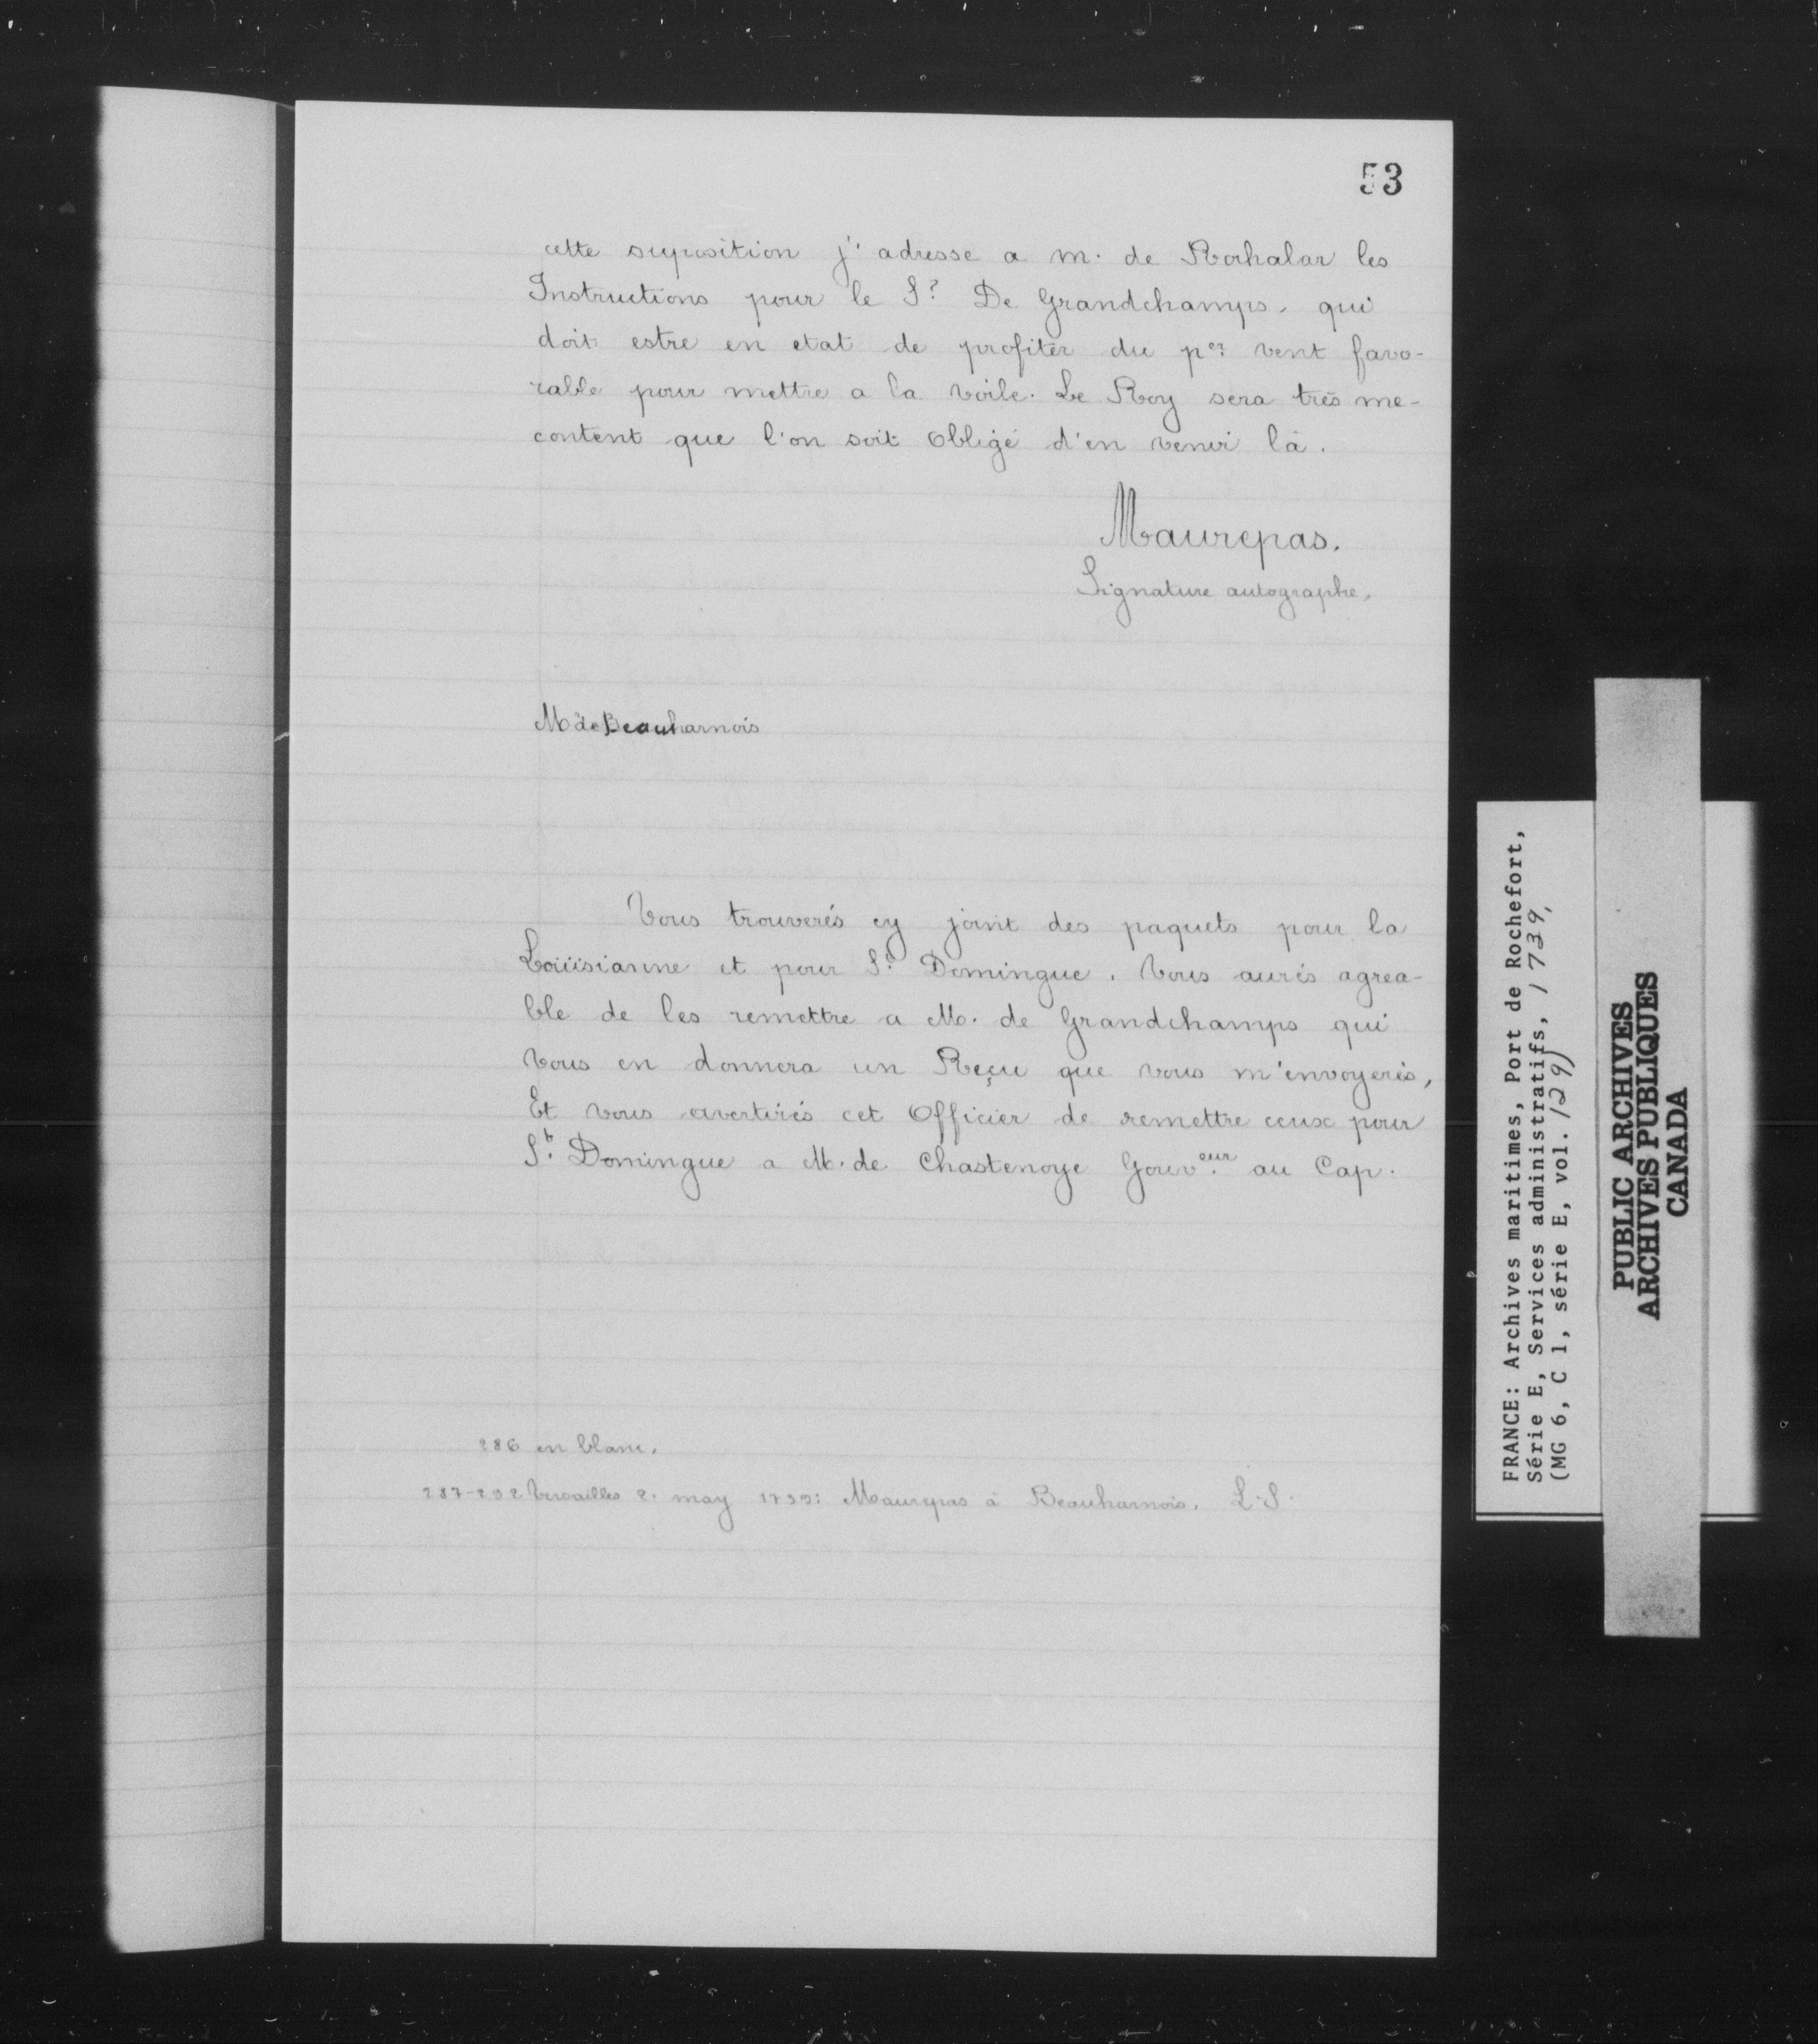 53
cette suposition j'adresse a m. de Rochalar les
Instructions pour le Sr. De Grandchamps, qui
doit estre en etat de profiter du per. vent favo-
rable pour mettre a la voile. Le Roy sera très me-
content que l'on soit obligé d'en venir là.
Maurepas.
Signature autographe.
M de Beauharnois
Vous trouverés cy joint des paquets pour la
Loüisianne et pour St. Domingue. Vous aurés agrea-
ble de les remettre a M. de Grandchamps qui
vous en donnera un Reçu que vous m'envoyerés,
Et vous avertirés cet Officier de remettre ceux pour
St. Domingue a M. de Chastenoye Gouveur. au Cap.
286 en blanc.
287-292 Versailles 2. may 1739: Maurepas à Beauharnois. L.S.
FRANCE: Archives maritimes, Port de Rochefort,
Série E, Services administratifs, 1739,
(MG 6, C 1, série E, vol. 129)
PUBLIC ARCHIVES
ARCHIVES PUBLIQUES
CANADA